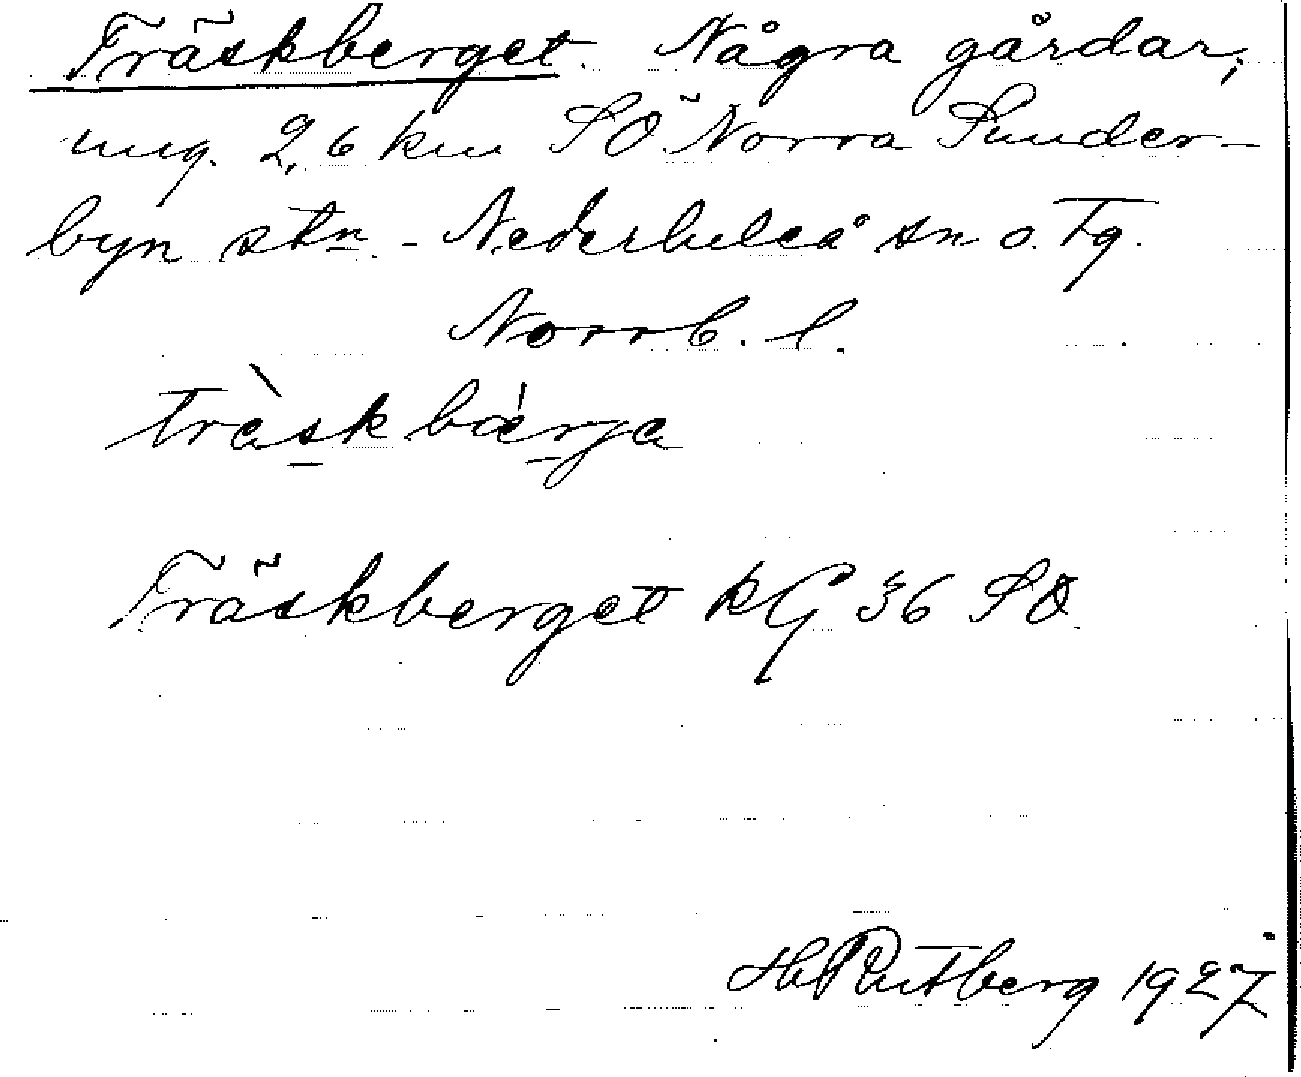 Träskberget. Några gårdar,
ung. 2,6 km SÖ Norra Sunder-
byn stn. - Nederluleå sn o. Tg.
Norrb. l.
träskbærja
Träskberget kG 36 SO
H. Rutberg 1927